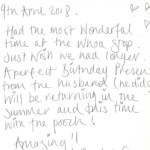 9th April 2018.
Had the most Wonderful
time at the Whoa Stop.
Just wish we had longer.
A perfect Birthday Present
from the husband (he did
Will be returning in the
Summer and this time
with the pooch!
Amazing!!